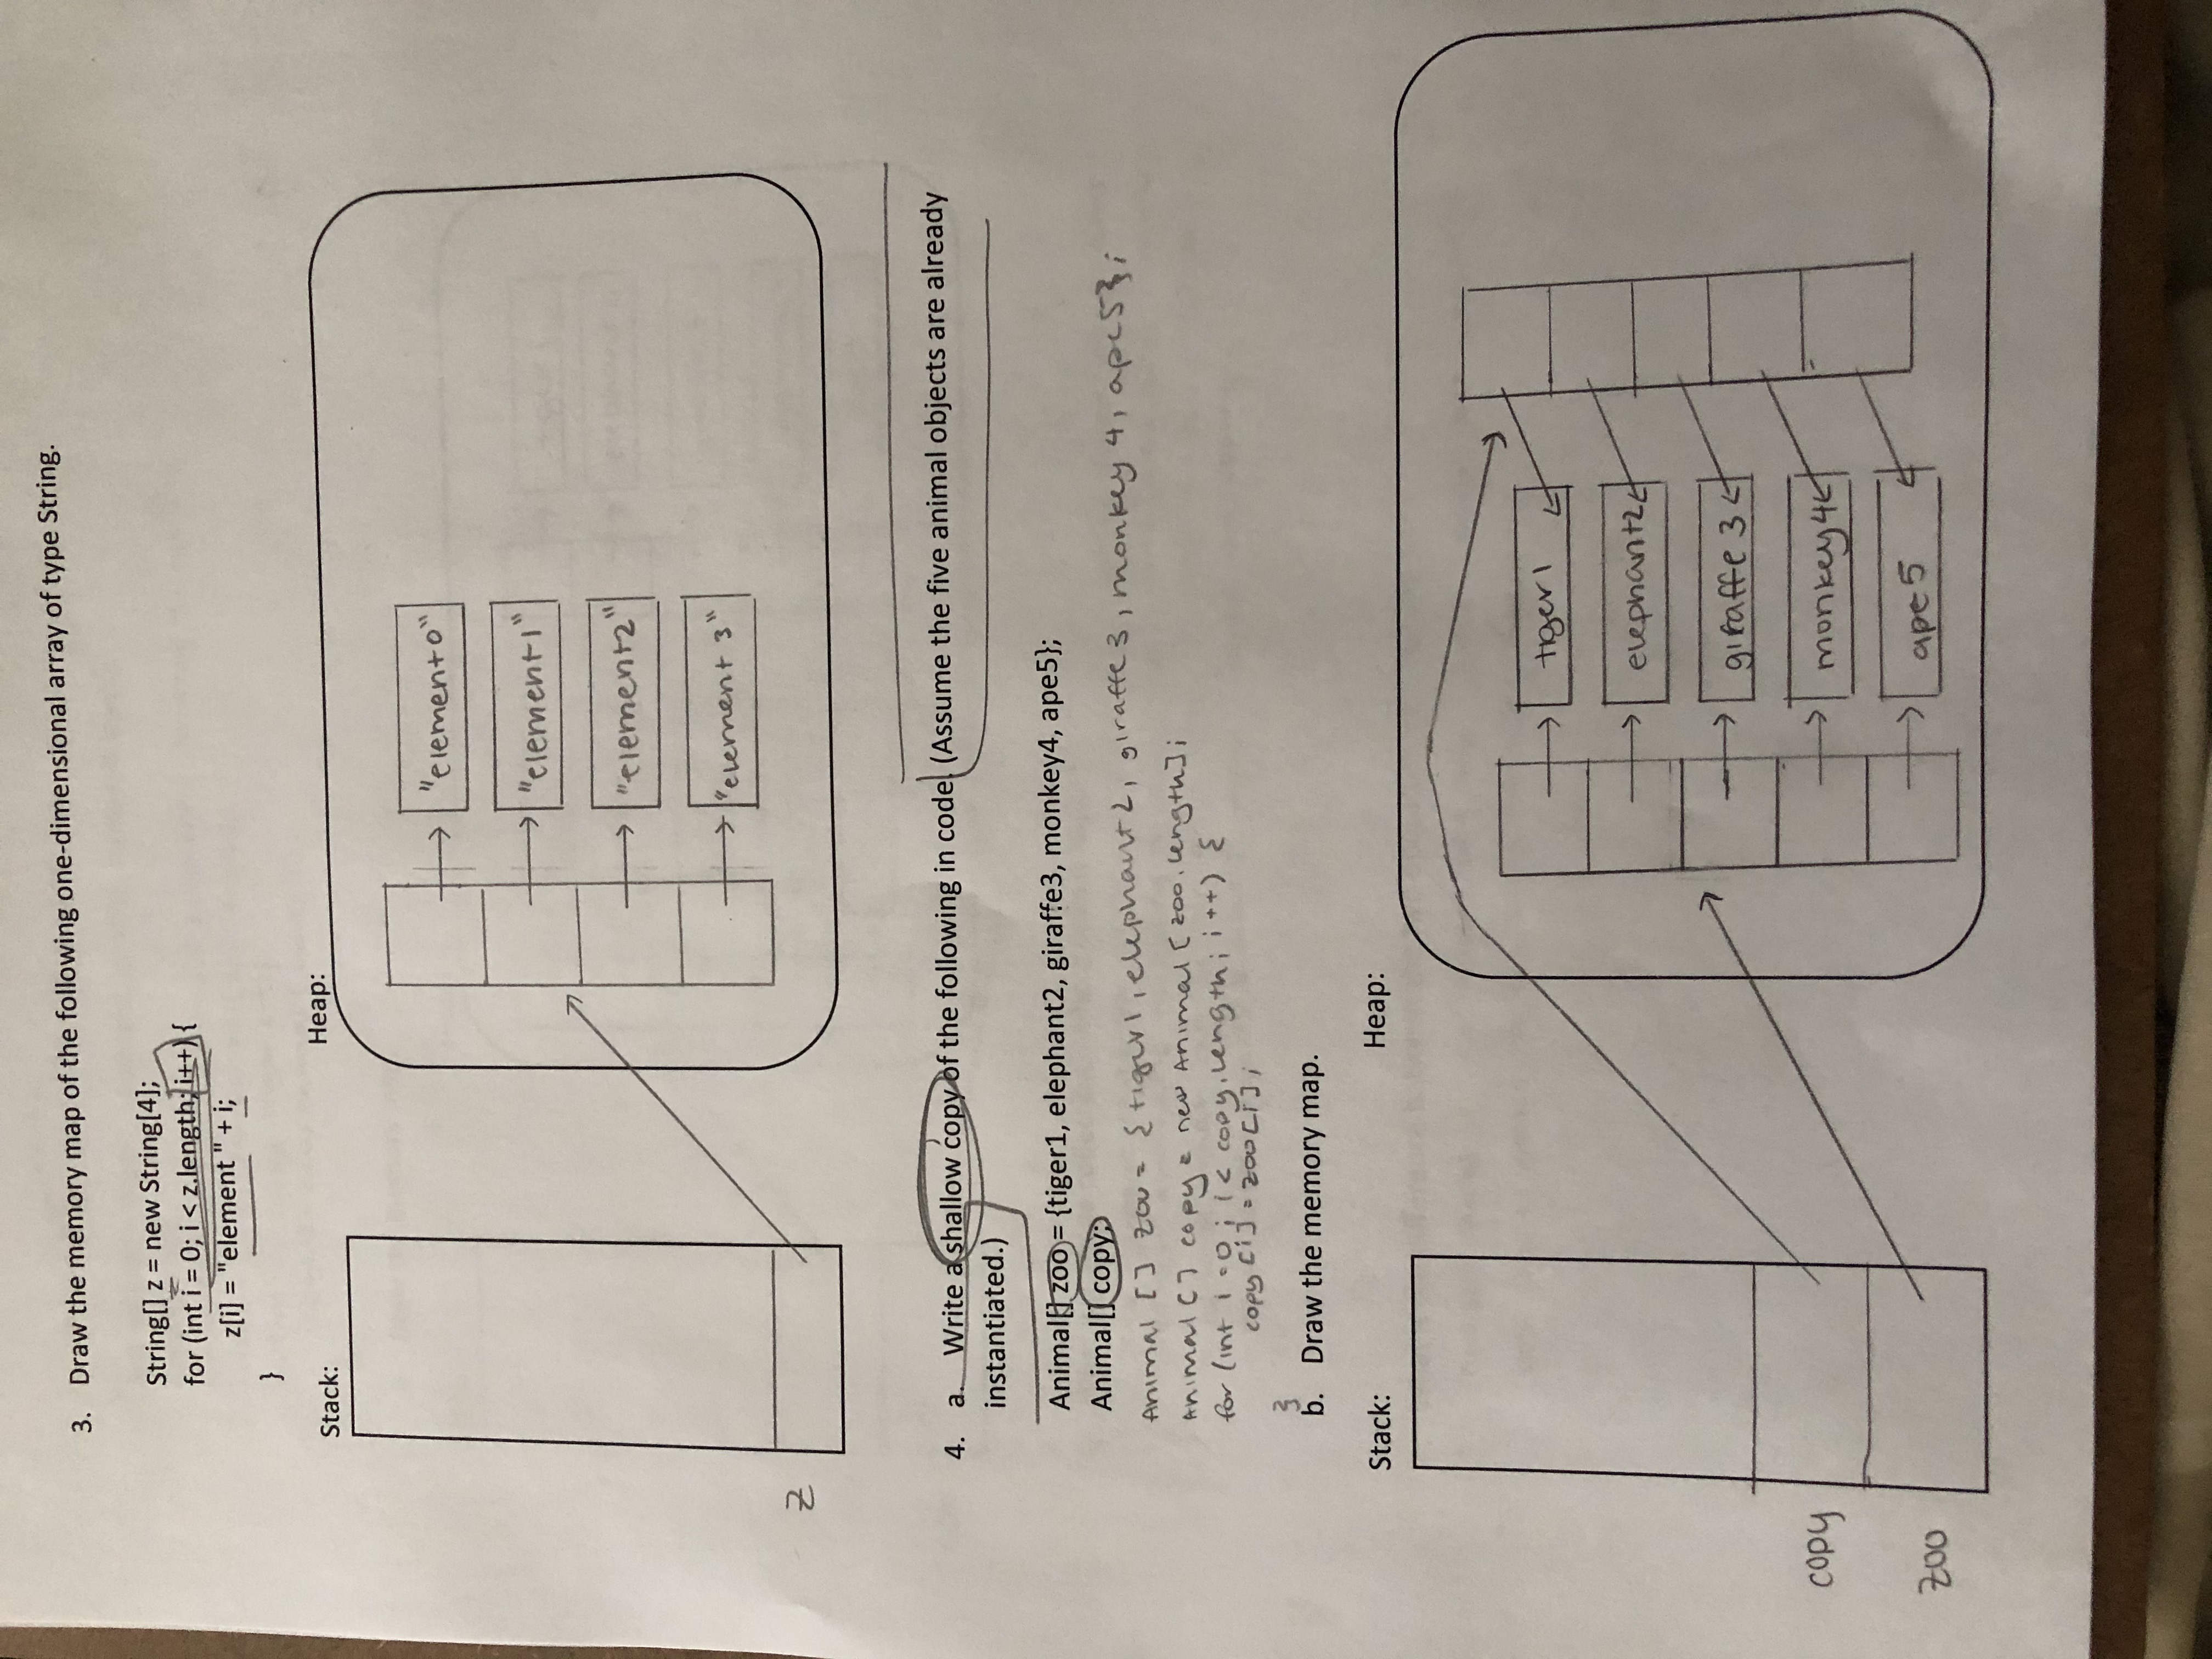 3. Draw the memory map of the following one-dimensional array of type String.
String[] z = new String[4];
for (int i = 0; i < z.length; i++) {
z[i] = "element " + i;
}
Stack:
Heap:
"element0"
"element1"
"element2"
"element 3"
z
4. a. Write a shallow copy of the following in code. (Assume the five animal objects are already
instantiated.)
Animal[] zoo = {tiger1, elephant2, giraffe3, monkey4, ape5};
Animal[] copy;
Animal [] zoo = {tiger1, elephant2, giraffe 3, monkey 4, ape5};
Animal [] copy = new Animal [zoo.length];
for (int i = 0; i < copy.length; i++) {
copy [i] = zoo[i];
}
b. Draw the memory map.
Stack:
Heap:
tiger1
elephant2
giraffe 3
monkey4
ape5
copy
zoo